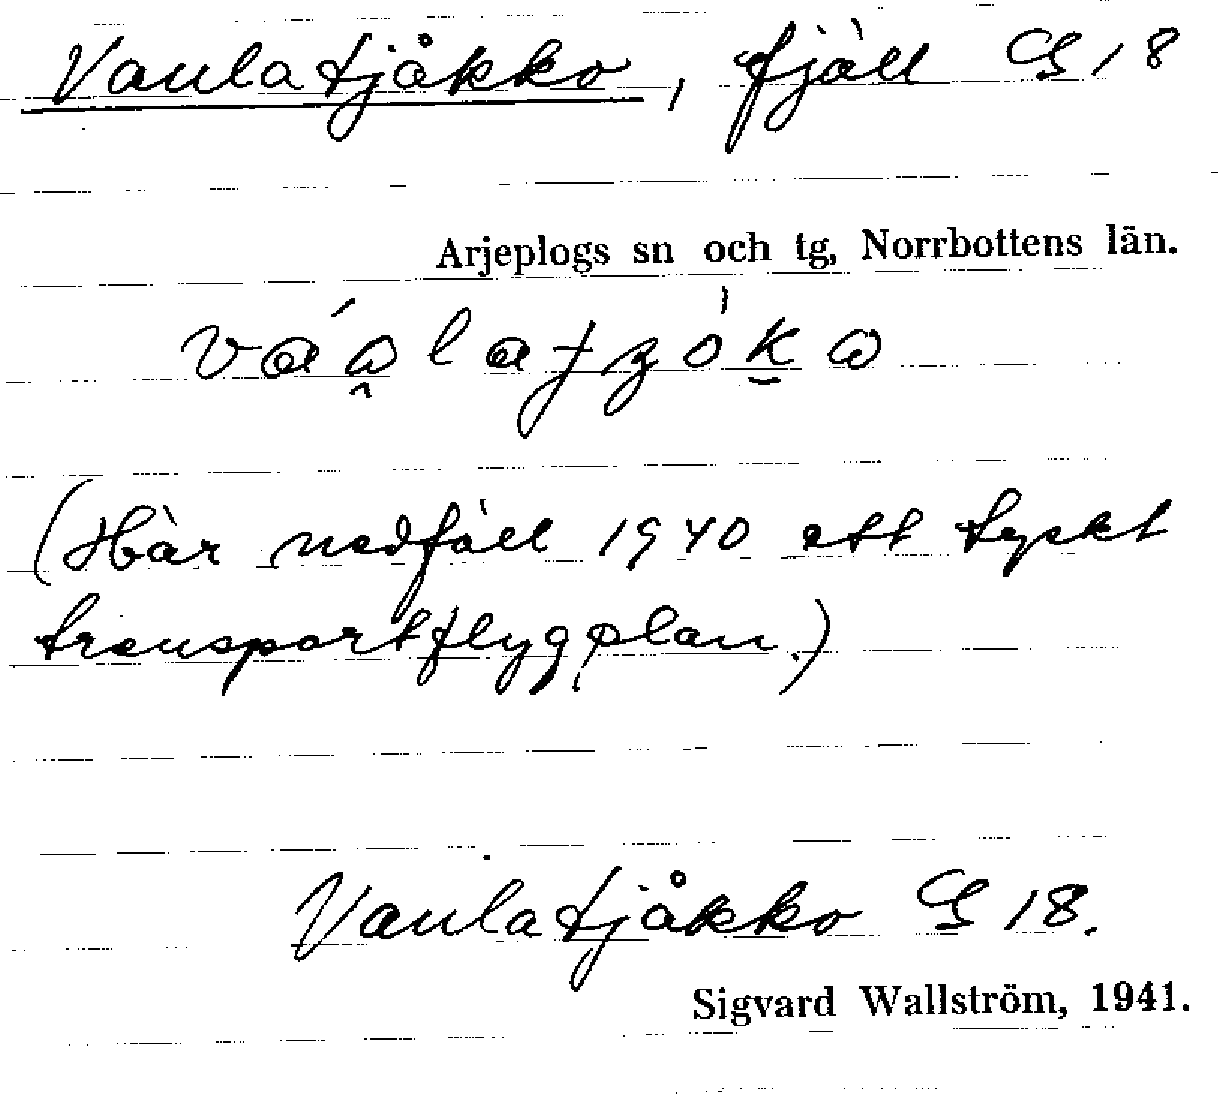 Vaulatjåkko, fjäll G 18
Arjeplogs sn och tg, Norrbottens län.
(Här nedföll 1940 ett tyskt
transportflygplan.)
Vaulatjåkko G 18.
Sigvard Wallström, 1941.